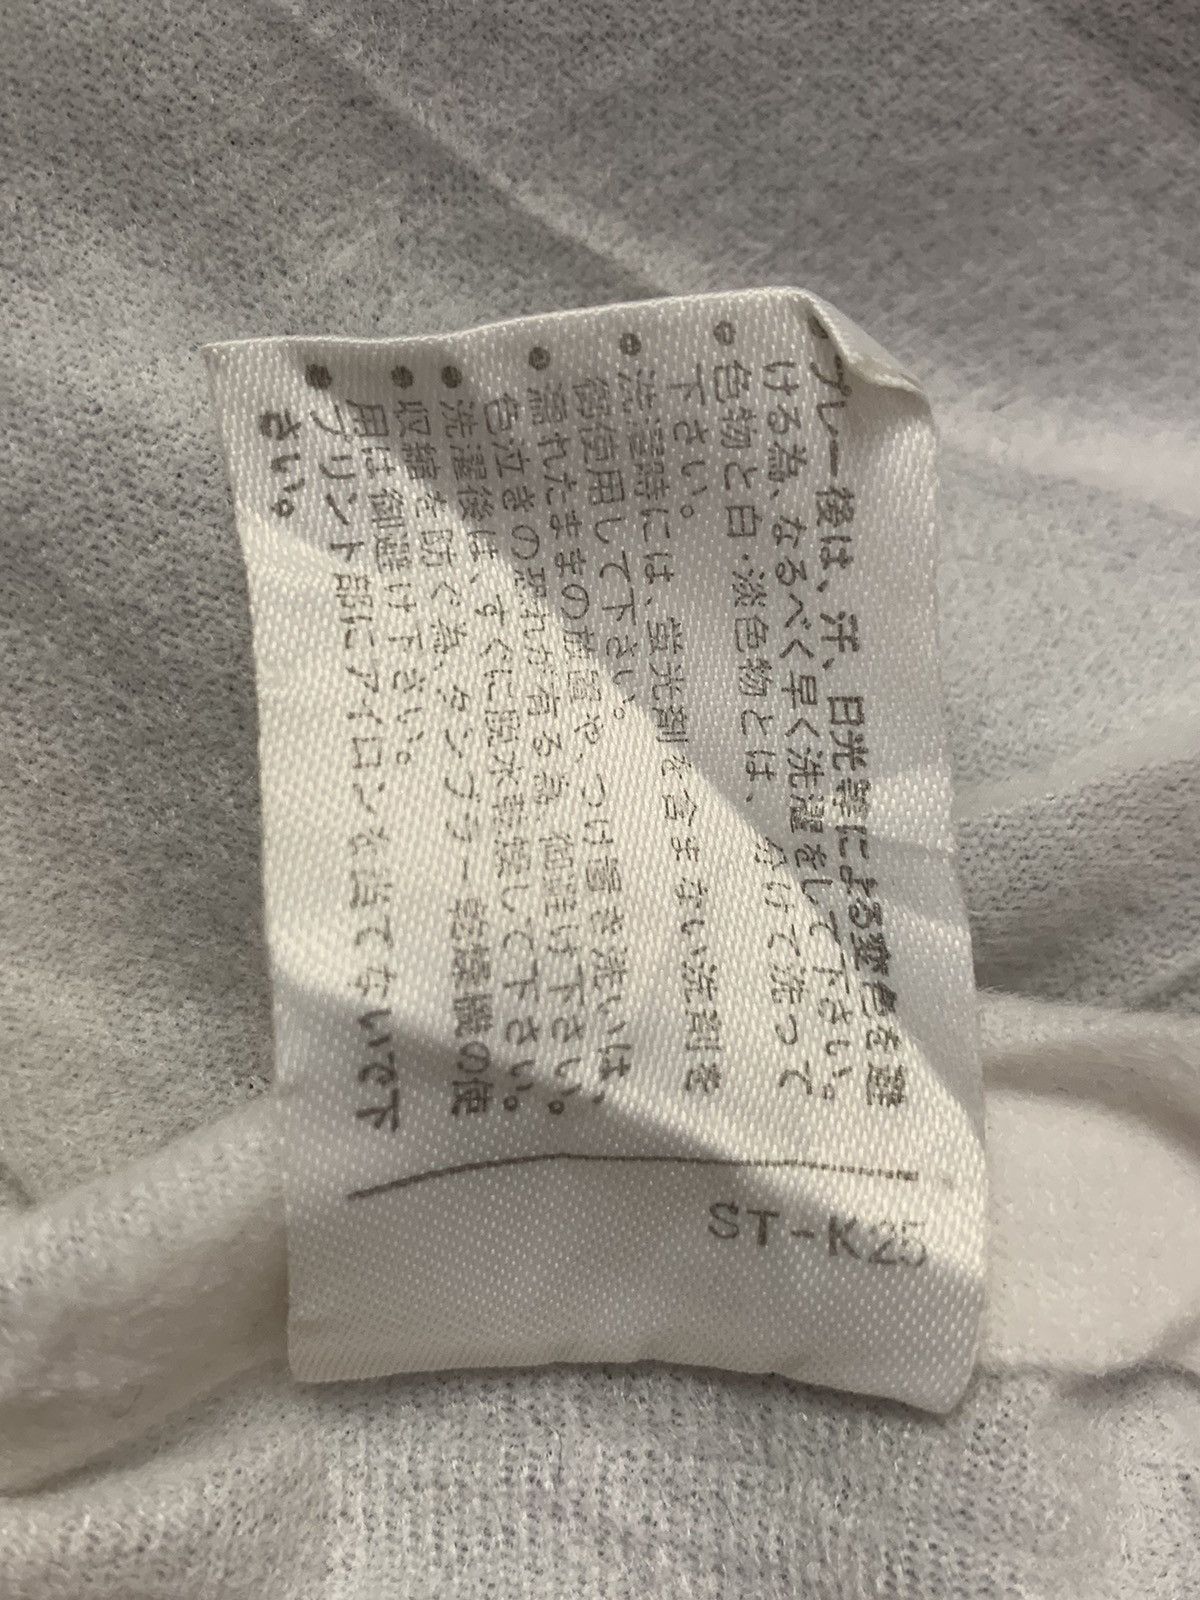 ●プレー後は、汗、日光等による変色を避
ける為、なるべく早く洗濯をして下さい。
●色物と白・淡色物とは、分けて洗って
下さい。
●洗濯時には、蛍光剤を含まない洗剤を
御使用して下さい。
●濡れたままの放置や、つけ置き洗いは、
色泣きの恐れが有る為、御避け下さい。
●洗濯後は、すぐに脱水乾燥して下さい。
●収縮を防ぐ為、タンブラー乾燥機の使
用は御避け下さい。
●プリント部にアイロンを当てないで下
さい。
ST-K25